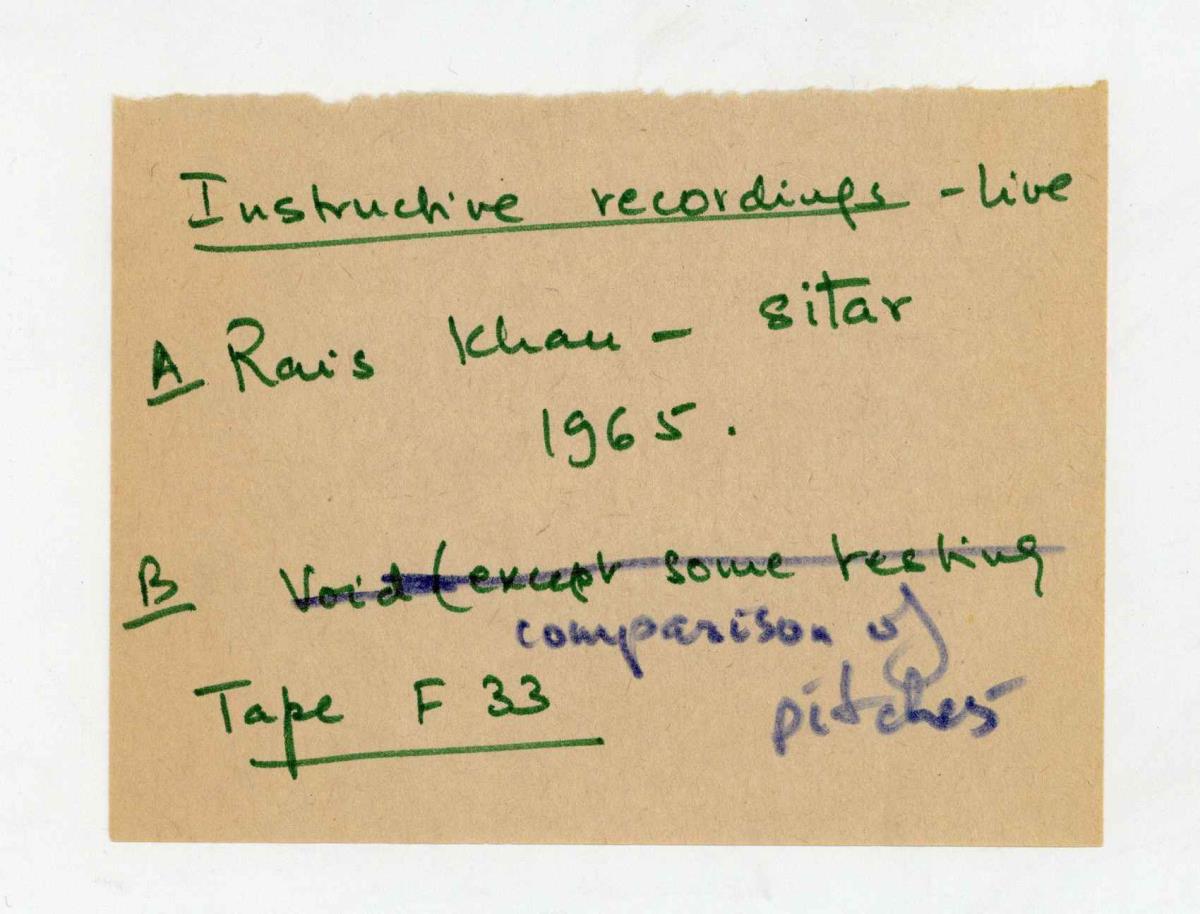 Instructive recordings - live
A Rais Khan - sitar
1965.
B Void (except some testing
comparison of
pitches
Tape F 33